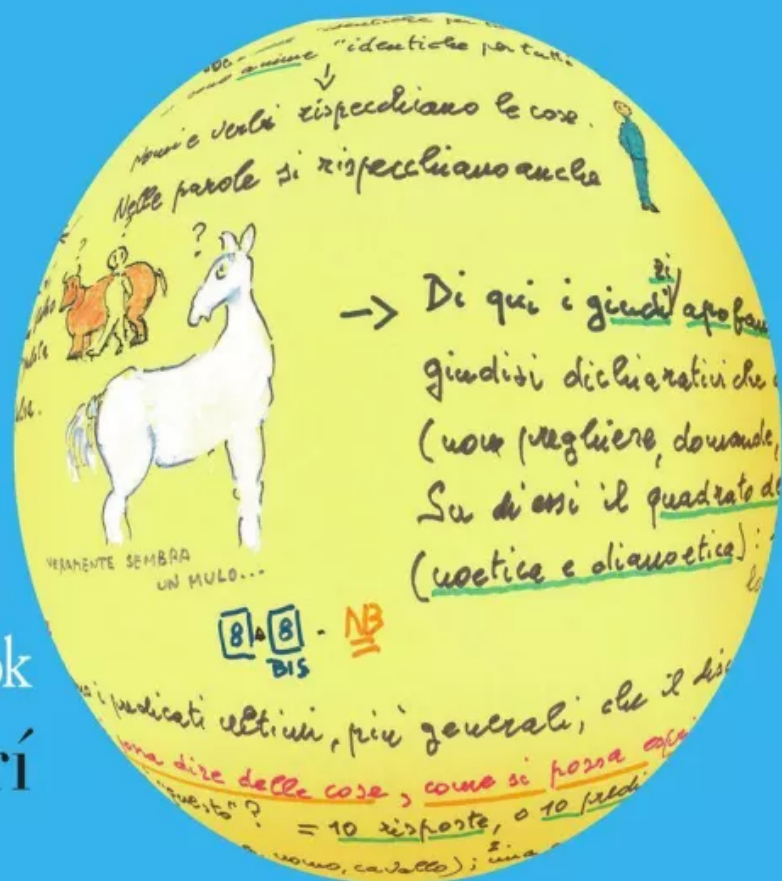 "identiche per tutti
sono anime "identiche per tutti
nomi e verbi rispecchiano le cose.
Nelle parole si rispecchiano anche
?
→ Di qui i giudizi apofan
giudizi dichiarativi che
(non preghiere, domande,
Su di essi il quadrato de
(noetica e dianoetica):
VERAMENTE SEMBRA
UN MULO...
8 8 NB
BIS
ok
rí
i predicati ultimi, più generali, che il dis
possa dire delle cose, come si possa espri
"questo"? = 10 risposte, o 10 predi
uomo, cavallo); una